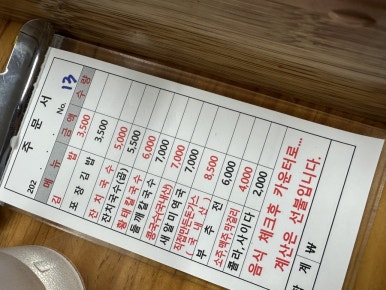 주 문 서
202 . . . No. 13
메 뉴 금 액 수 량
김 밥 3,500
포 장 김 밥 3,500
잔 치 국 수 5,000
잔치국수(곱) 5,500
황태칼국수 6,000
들깨칼국수 7,000
콩국수(국내산) 7,000
새알미역국 7,000
직접만든돈가스 8,500
(국 내 산)
부 추 전 6,000
소주,맥주,막걸리 4,000
콜라,사이다 2,000
음식 체크후 카운터로...
계산은 선불입니다.
합 계 ₩